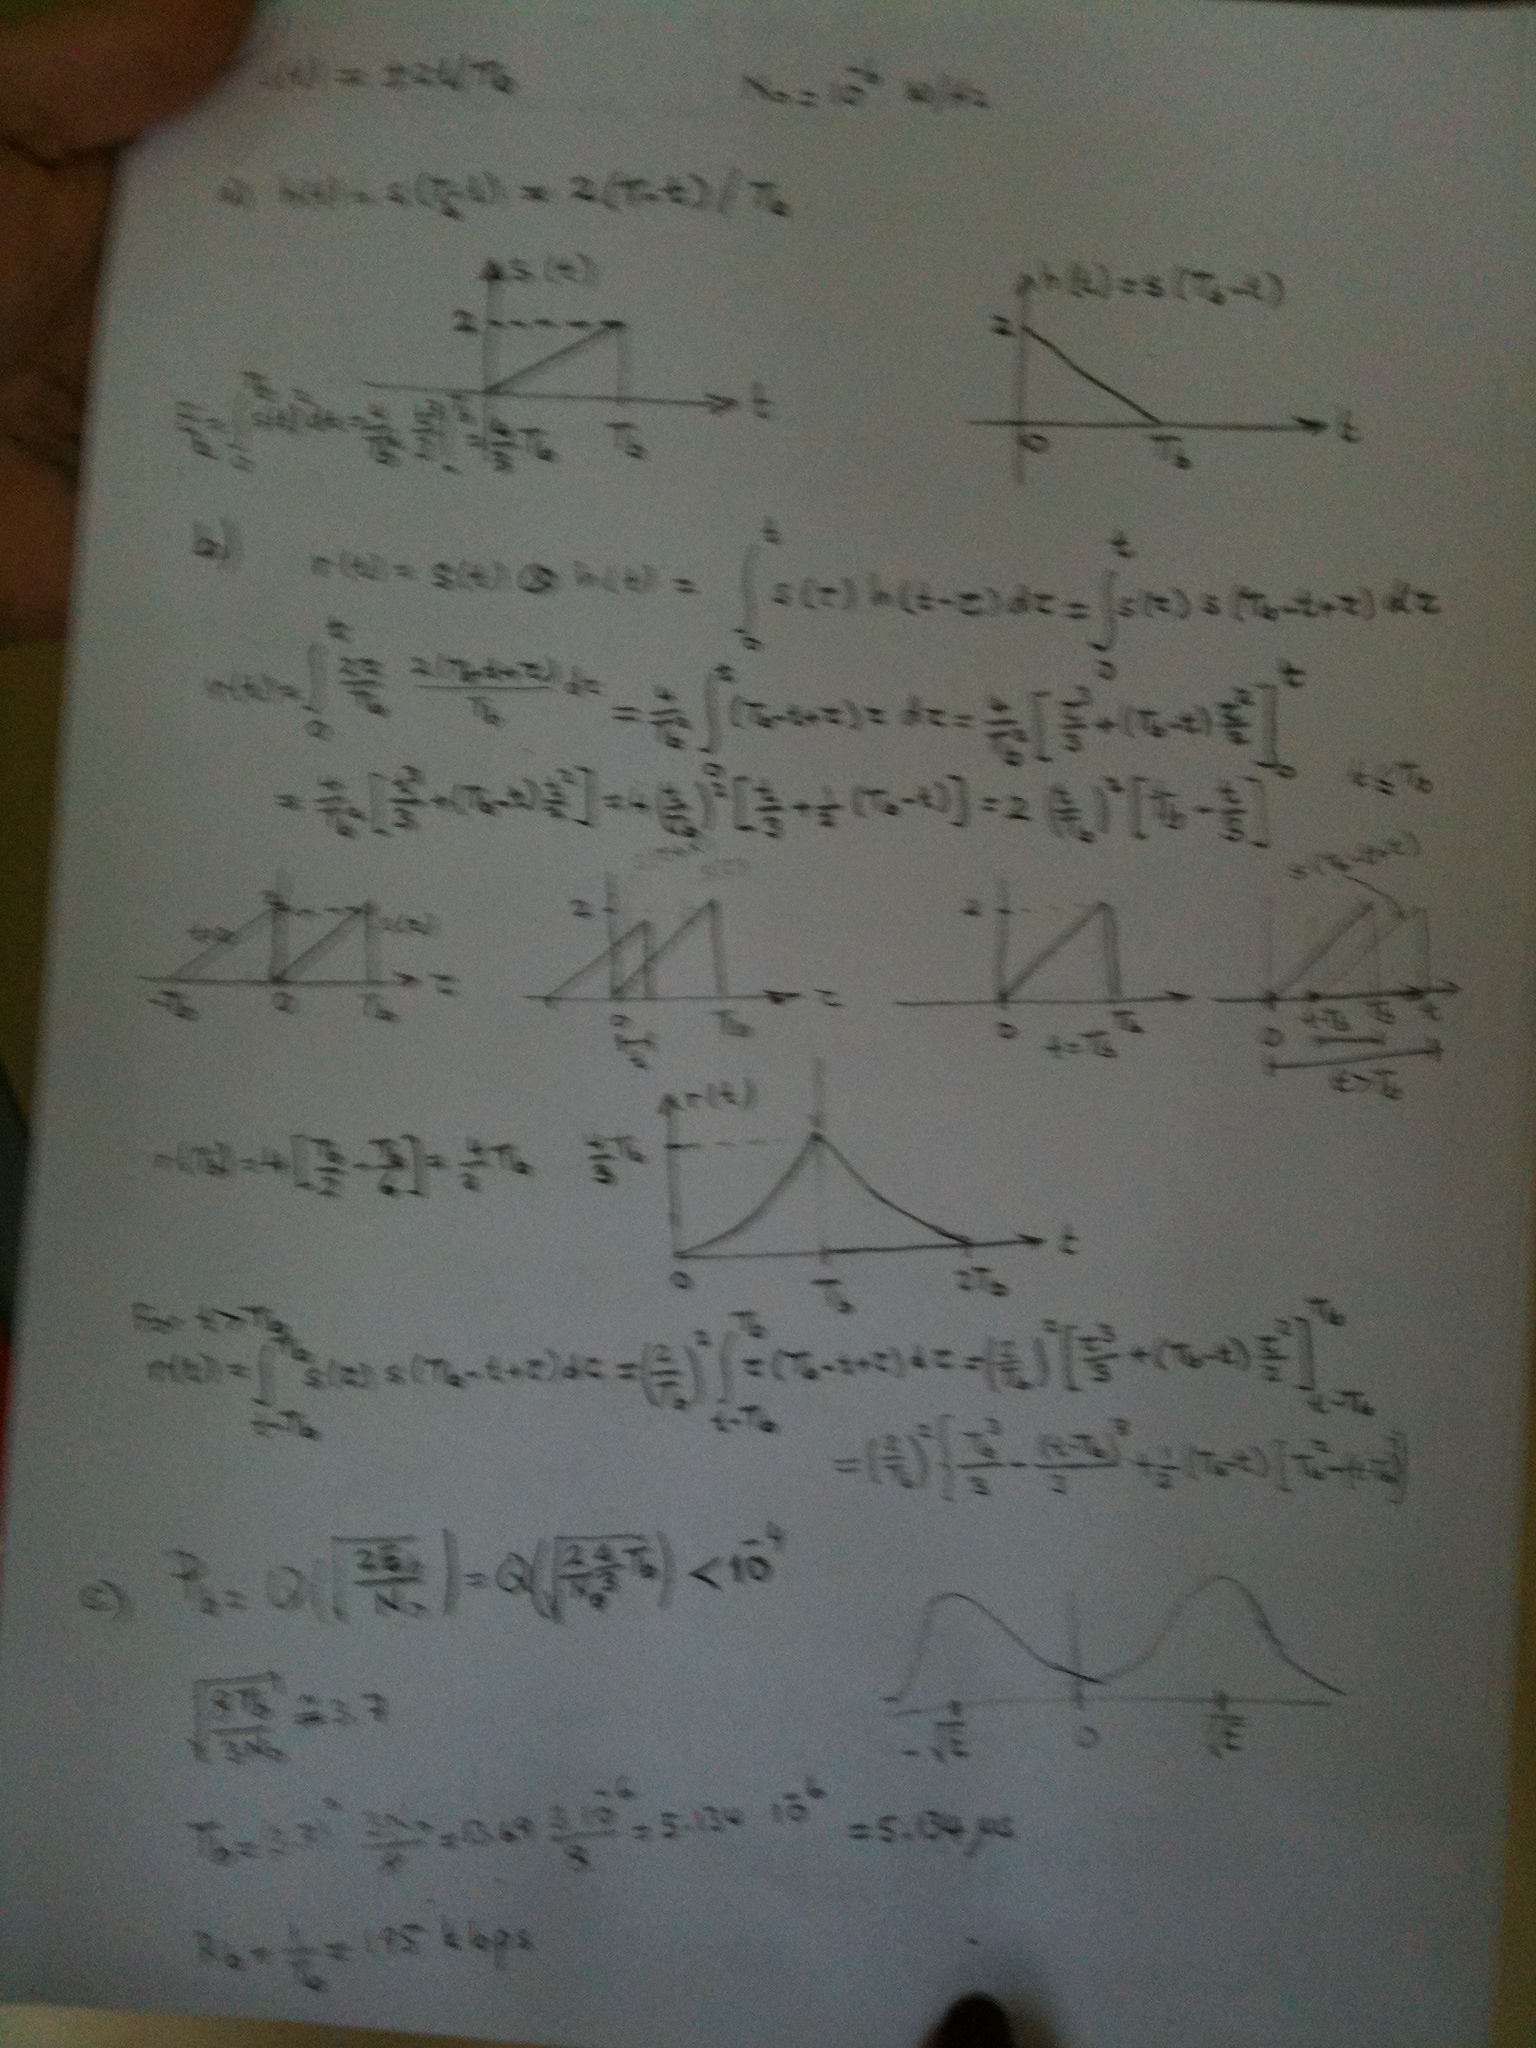 s(t) = ±2t/Tb
N₀ = 10⁻⁶ W/Hz
a) h(t) = s(Tb-t) = 2(Tb-t)/Tb
s(t)
2
t
Tb
h(t) = s(Tb-t)
2
0
Tb
t
Eb = ∫₀^Tb s(t)² dt = 4/Tb² t³/3 |₀^Tb = 4/3 Tb
b) r(t) = s(t) ⊗ h(t) = ∫₀^t s(τ) h(t-τ) dτ = ∫₀^t s(τ) s(Tb-t+τ) dτ
r(t) = ∫₀^t 2τ/Tb 2(Tb-t+τ)/Tb dτ = 4/Tb² ∫₀^t (Tb-t+τ)τ dτ = 4/Tb² [τ³/3 + (Tb-t) τ²/2]₀^t
= 4/Tb² [t³/3 + (Tb-t) t²/2] = 4 (t/Tb)² [t/3 + 1/2 (Tb-t)] = 2 (t/Tb)² [Tb - t/3] t ≤ Tb
2
s(τ)
-Tb
0
Tb
τ
2
0
Tb
τ
2
0
Tb
t=Tb
s(Tb-t+τ)
0
t-Tb
Tb
t
t>Tb
r(Tb) = 4 [Tb/2 - Tb/6] = 4/3 Tb
4/3 Tb
r(t)
0
Tb
2Tb
t
For t > Tb
r(t) = ∫_{t-Tb}^Tb s(τ) s(Tb-t+τ) dτ = (2/Tb)² ∫_{t-Tb}^Tb τ (Tb-t+τ) dτ = (2/Tb)² [τ³/3 + (Tb-t) τ²/2]_{t-Tb}^Tb
= (2/Tb)² {Tb³/3 - (t-Tb)³/3 + 1/2 (Tb-t) [Tb² - (t-Tb)²]
c) Pb = Q(√(2Eb/N₀)) = Q(√(2/N₀ 4/3 Tb)) < 10⁻⁴
√(8Tb/3N₀) ≅ 3.7
0
Tb = 3.7² 3N₀/8 = 13.69 3 10⁻⁶/8 = 5.134 10⁻⁶ = 5.134 μs
Rb = 1/Tb = 195 kbps